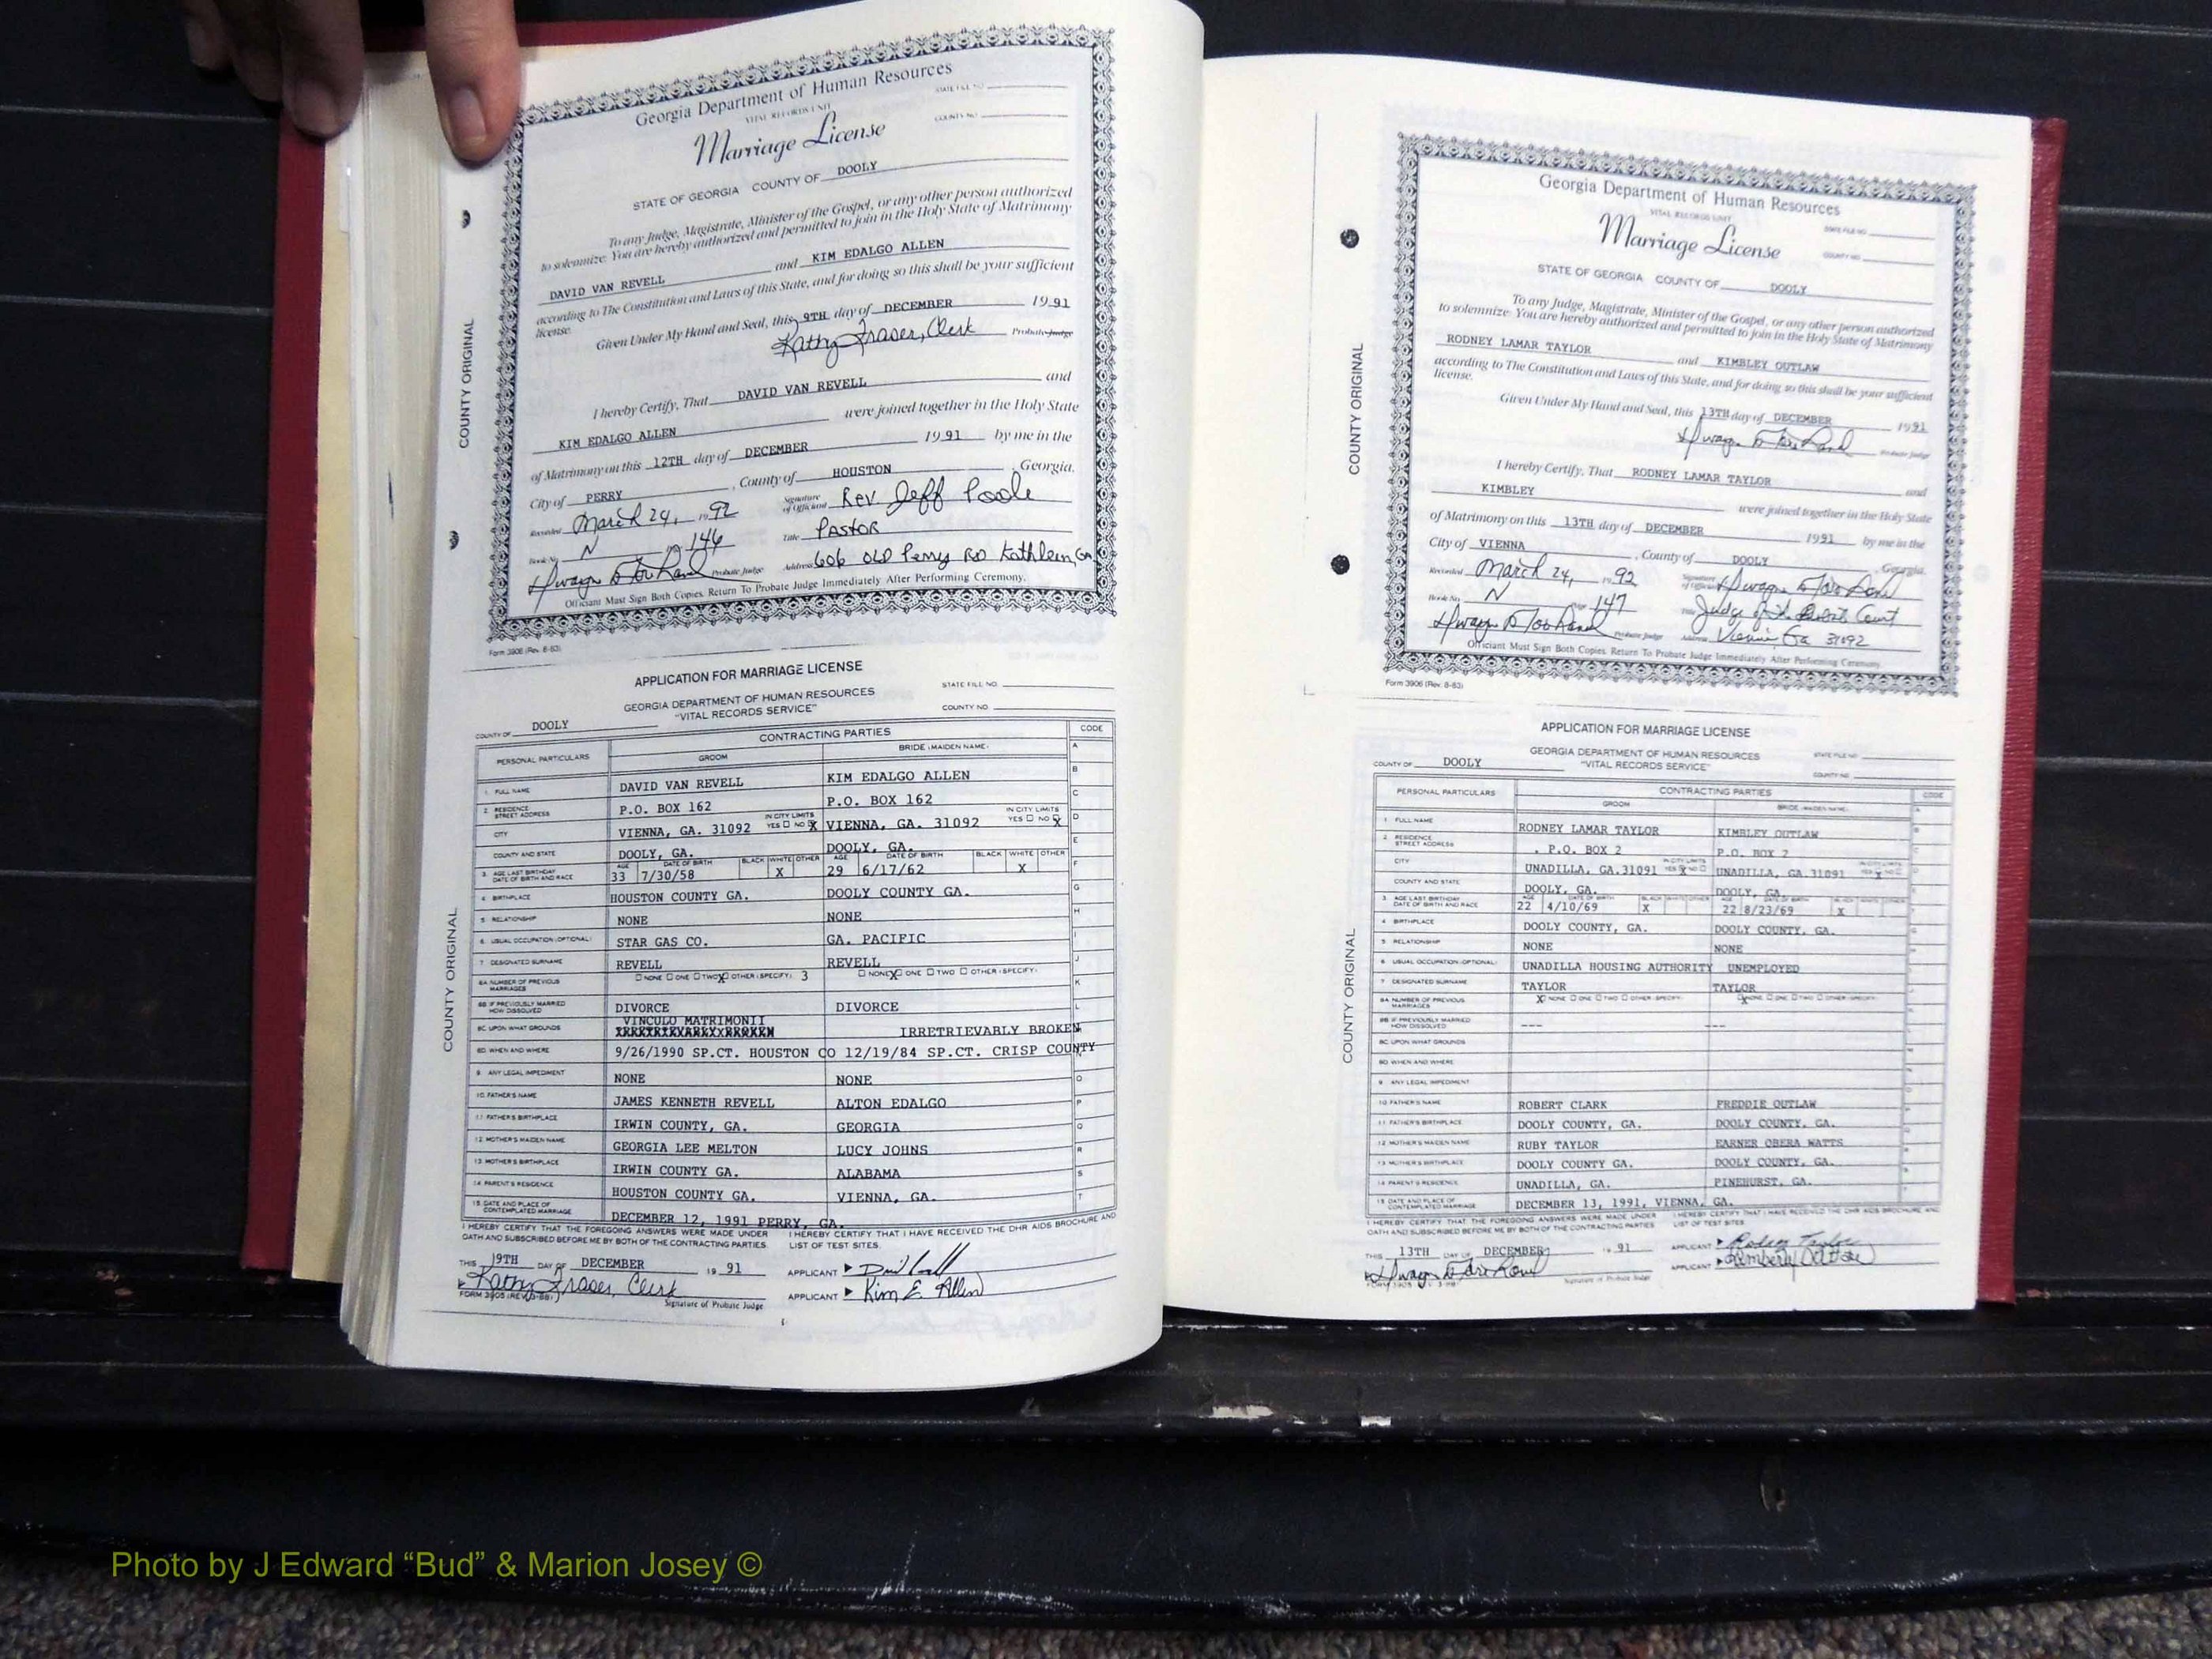 Georgia Department of Human Resources
VITAL RECORDS UNIT
STATE FILE NO.
COUNTY NO.
Marriage License
STATE OF GEORGIA COUNTY OF DOOLY
To any Judge, Magistrate, Minister of the Gospel, or any other person authorized
to solemnize: You are hereby authorized and permitted to join in the Holy State of Matrimony
DAVID VAN REVELL and KIM EDALGO ALLEN
according to The Constitution and Laws of this State, and for doing so this shall be your sufficient
license.
Given Under My Hand and Seal, this 9TH day of DECEMBER 1991
Kathy Fraser, Clerk Probate Judge
I hereby Certify, That DAVID VAN REVELL and
KIM EDALGO ALLEN were joined together in the Holy State
of Matrimony on this 12TH day of DECEMBER 1991 by me in the
City of PERRY, County of HOUSTON, Georgia.
Recorded March 24, 1992 Signature of Official Rev Jeff Poole
Book No. N 146 Title PASTOR
Probate Judge Address 606 Old Perry Rd Kathleen, GA
Officiant Must Sign Both Copies. Return To Probate Judge Immediately After Performing Ceremony.
Form 3906 (Rev. 8-83)
COUNTY ORIGINAL
APPLICATION FOR MARRIAGE LICENSE
GEORGIA DEPARTMENT OF HUMAN RESOURCES
"VITAL RECORDS SERVICE"
STATE FILE NO.
COUNTY NO.
COUNTY OF DOOLY
PERSONAL PARTICULARS CONTRACTING PARTIES CODE
GROOM BRIDE (MAIDEN NAME)
1. FULL NAME DAVID VAN REVELL KIM EDALGO ALLEN
2. RESIDENCE STREET ADDRESS P.O. BOX 162 P.O. BOX 162
CITY VIENNA, GA. 31092 IN CITY LIMITS YES NO X VIENNA, GA. 31092 IN CITY LIMITS YES NO X
COUNTY AND STATE DOOLY, GA. DOOLY, GA.
3. AGE LAST BIRTHDAY DATE OF BIRTH AND RACE AGE 33 DATE OF BIRTH 7/30/58 BLACK WHITE X OTHER AGE 29 DATE OF BIRTH 6/17/62 BLACK WHITE X OTHER
4. BIRTHPLACE HOUSTON COUNTY GA. DOOLY COUNTY GA.
5. RELATIONSHIP NONE NONE
6. USUAL OCCUPATION (OPTIONAL) STAR GAS CO. GA. PACIFIC
7. DESIGNATED SURNAME REVELL REVELL
8A. NUMBER OF PREVIOUS MARRIAGES NONE ONE TWO X OTHER (SPECIFY) 3 NONE X ONE TWO OTHER (SPECIFY)
8B. IF PREVIOUSLY MARRIED HOW DISSOLVED DIVORCE DIVORCE
8C. UPON WHAT GROUNDS VINCULO MATRIMONII IRRETRIEVABLY BROKEN
8D. WHEN AND WHERE 9/26/1990 SP.CT. HOUSTON CO 12/19/84 SP.CT. CRISP COUNTY
9. ANY LEGAL IMPEDIMENT NONE NONE
10. FATHER'S NAME JAMES KENNETH REVELL ALTON EDALGO
11. FATHER'S BIRTHPLACE IRWIN COUNTY, GA. GEORGIA
12. MOTHER'S MAIDEN NAME GEORGIA LEE MELTON LUCY JOHNS
13. MOTHER'S BIRTHPLACE IRWIN COUNTY GA. ALABAMA
14. PARENT'S RESIDENCE HOUSTON COUNTY GA. VIENNA, GA.
15. DATE AND PLACE OF CONTEMPLATED MARRIAGE DECEMBER 12, 1991 PERRY, GA.
I HEREBY CERTIFY THAT THE FOREGOING ANSWERS WERE MADE UNDER I HEREBY CERTIFY THAT I HAVE RECEIVED THE DHR AIDS BROCHURE AND
OATH AND SUBSCRIBED BEFORE ME BY BOTH OF THE CONTRACTING PARTIES. LIST OF TEST SITES.
THIS 9TH DAY OF DECEMBER 19 91 APPLICANT
Kathy Fraser, Clerk APPLICANT Kim E. Allen
FORM 3905 (REV. 3-88) Signature of Probate Judge
COUNTY ORIGINAL
Georgia Department of Human Resources
VITAL RECORDS UNIT
STATE FILE NO.
Marriage License
COUNTY NO.
STATE OF GEORGIA COUNTY OF DOOLY
To any Judge, Magistrate, Minister of the Gospel, or any other person authorized
to solemnize: You are hereby authorized and permitted to join in the Holy State of Matrimony
RODNEY LAMAR TAYLOR and KIMBLEY OUTLAW
according to The Constitution and Laws of this State, and for doing so this shall be your sufficient
license.
Given Under My Hand and Seal, this 13TH day of DECEMBER 1991
Probate Judge
I hereby Certify, That RODNEY LAMAR TAYLOR and
KIMBLEY were joined together in the Holy State
of Matrimony on this 13TH day of DECEMBER 1991 by me in the
City of VIENNA, County of DOOLY, Georgia.
Recorded March 24, 1992 Signature of Official
Book No. N Page 147 Title Judge of the Probate Court
Probate Judge Address Vienna Ga 31092
Officiant Must Sign Both Copies. Return To Probate Judge Immediately After Performing Ceremony.
Form 3906 (Rev. 8-83)
COUNTY ORIGINAL
APPLICATION FOR MARRIAGE LICENSE
GEORGIA DEPARTMENT OF HUMAN RESOURCES
"VITAL RECORDS SERVICE"
STATE FILE NO.
COUNTY NO.
COUNTY OF DOOLY
PERSONAL PARTICULARS CONTRACTING PARTIES CODE
GROOM BRIDE (MAIDEN NAME)
1. FULL NAME RODNEY LAMAR TAYLOR KIMBLEY OUTLAW
2. RESIDENCE STREET ADDRESS P.O. BOX 2 P.O. BOX 2
CITY UNADILLA, GA.31091 YES X NO UNADILLA, GA.31091 YES X NO
COUNTY AND STATE DOOLY, GA. DOOLY, GA.
3. AGE LAST BIRTHDAY DATE OF BIRTH AND RACE 22 4/10/69 X 22 8/23/69 X
4. BIRTHPLACE DOOLY COUNTY, GA. DOOLY COUNTY, GA.
5. RELATIONSHIP NONE NONE
6. USUAL OCCUPATION (OPTIONAL) UNADILLA HOUSING AUTHORITY UNEMPLOYED
7. DESIGNATED SURNAME TAYLOR TAYLOR
8A. NUMBER OF PREVIOUS MARRIAGES X NONE ONE TWO OTHER (SPECIFY) X NONE ONE TWO OTHER (SPECIFY)
8B. IF PREVIOUSLY MARRIED HOW DISSOLVED --- ---
8C. UPON WHAT GROUNDS
8D. WHEN AND WHERE
9. ANY LEGAL IMPEDIMENT
10. FATHER'S NAME ROBERT CLARK FREDDIE OUTLAW
11. FATHER'S BIRTHPLACE DOOLY COUNTY, GA. DOOLY COUNTY, GA.
12. MOTHER'S MAIDEN NAME RUBY TAYLOR EARNER OBERA WATTS
13. MOTHER'S BIRTHPLACE DOOLY COUNTY GA. DOOLY COUNTY, GA.
14. PARENT'S RESIDENCE UNADILLA, GA. PINEHURST, GA.
15. DATE AND PLACE OF CONTEMPLATED MARRIAGE DECEMBER 13, 1991, VIENNA, GA.
I HEREBY CERTIFY THAT THE FOREGOING ANSWERS WERE MADE UNDER I HEREBY CERTIFY THAT I HAVE RECEIVED THE DHR AIDS BROCHURE AND
OATH AND SUBSCRIBED BEFORE ME BY BOTH OF THE CONTRACTING PARTIES LIST OF TEST SITES
THIS 13TH DAY OF DECEMBER 19 91 APPLICANT Rodney Taylor
APPLICANT
Signature of Probate Judge
COUNTY ORIGINAL
Photo by J Edward “Bud” & Marion Josey ©